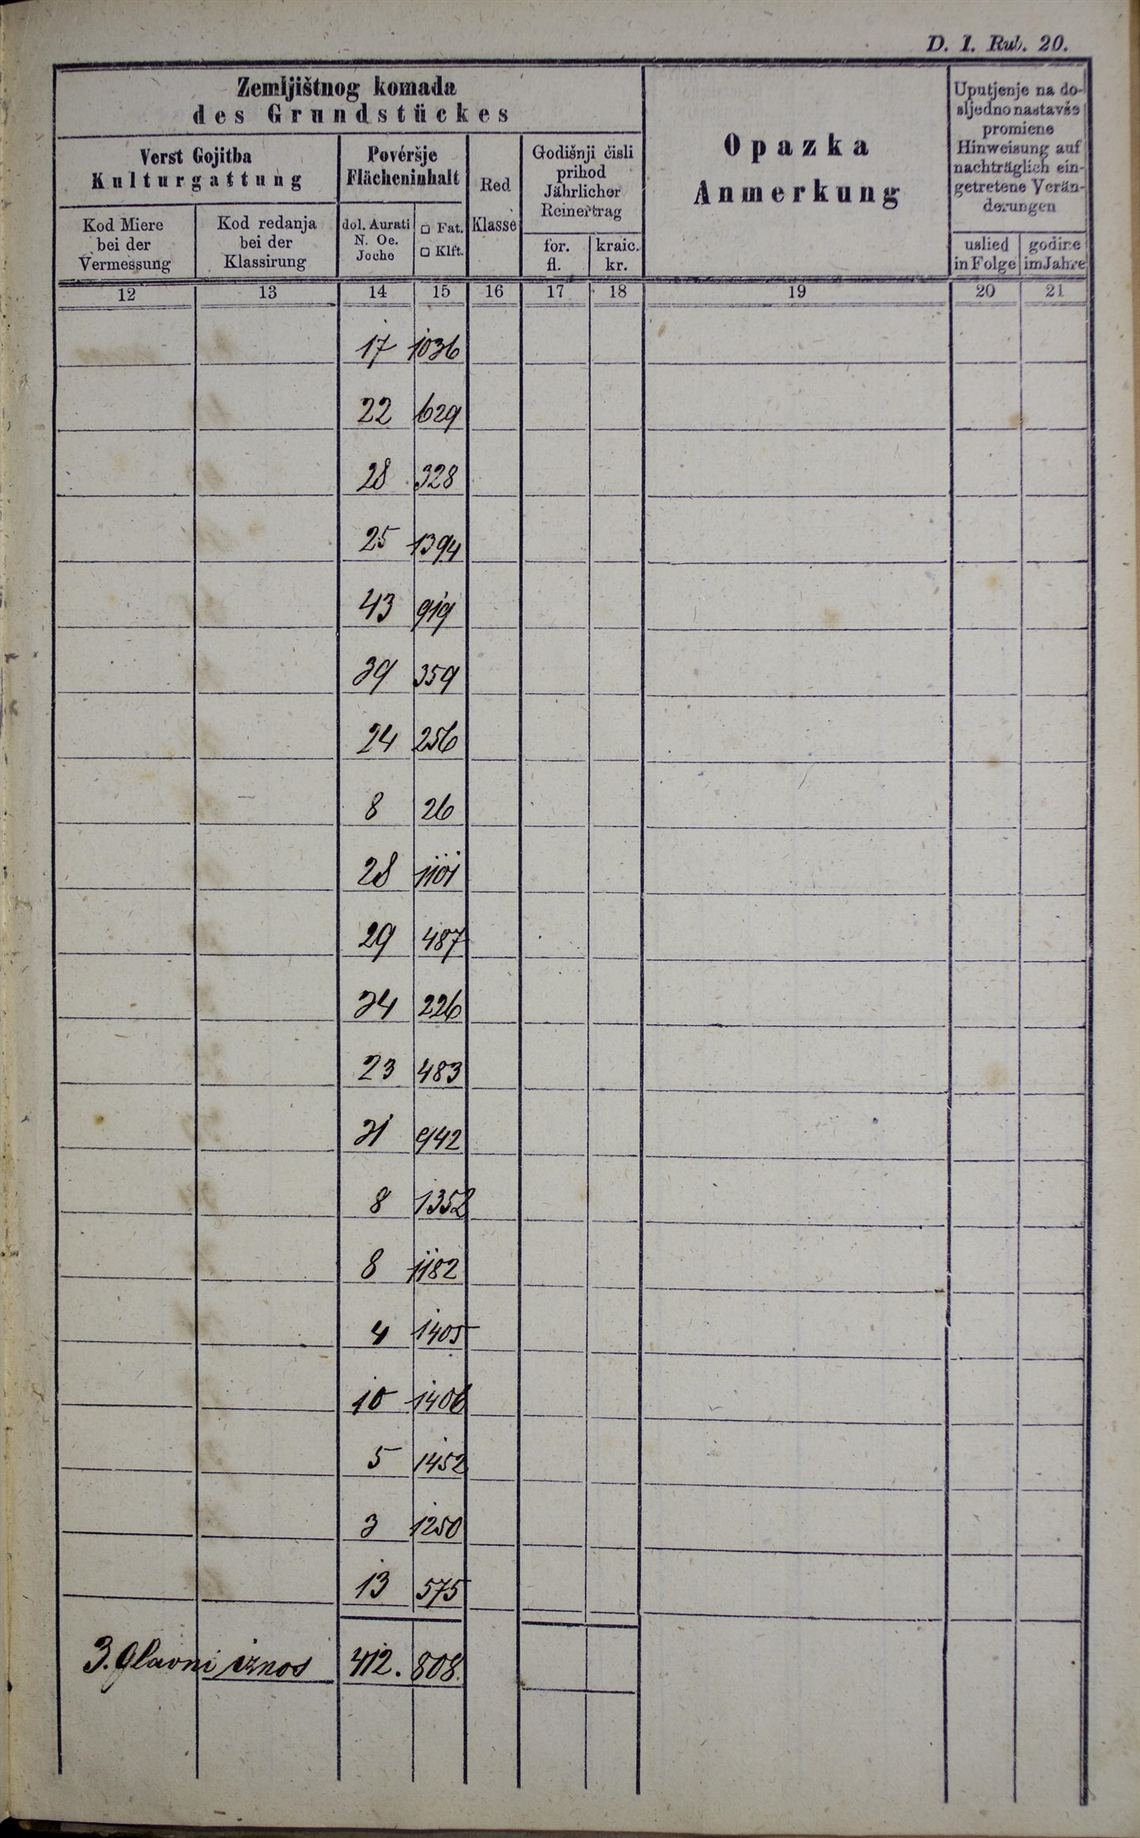 D. I. Rub. 20.
Zemljištnog komada
des Grundstückes
Verst Gojitba
Kulturgattung
Kod Miere
bei der
Vermessung
Kod redanja
bei der
Klassirung
Povéršje
Flächeninhalt
dol. Aurati
N. Oe.
Joche
□ Fat.
□ Klft.
Red
Klasse
Godišnji čisli
prihod
Jährlicher
Reinertrag
for.
fl.
kraic.
kr.
Opazka
Anmerkung
Uputjenje na do-
sljedno nastavše
promiene
Hinweisung auf
nachträglich ein-
getretene Verän-
derungen
uslied
in Folge
godine
im Jahre
12 13 14 15 16 17 18 19 20 21
17 1036
22 629
28 328
25 1394
43 919
39 359
24 256
8 26
28 1101
29 487
34 226
23 483
31 942
8 1352
8 1182
4 1405
10 1406
5 1452
3 1250
13 575
3. Glavni iznos 412. 808.